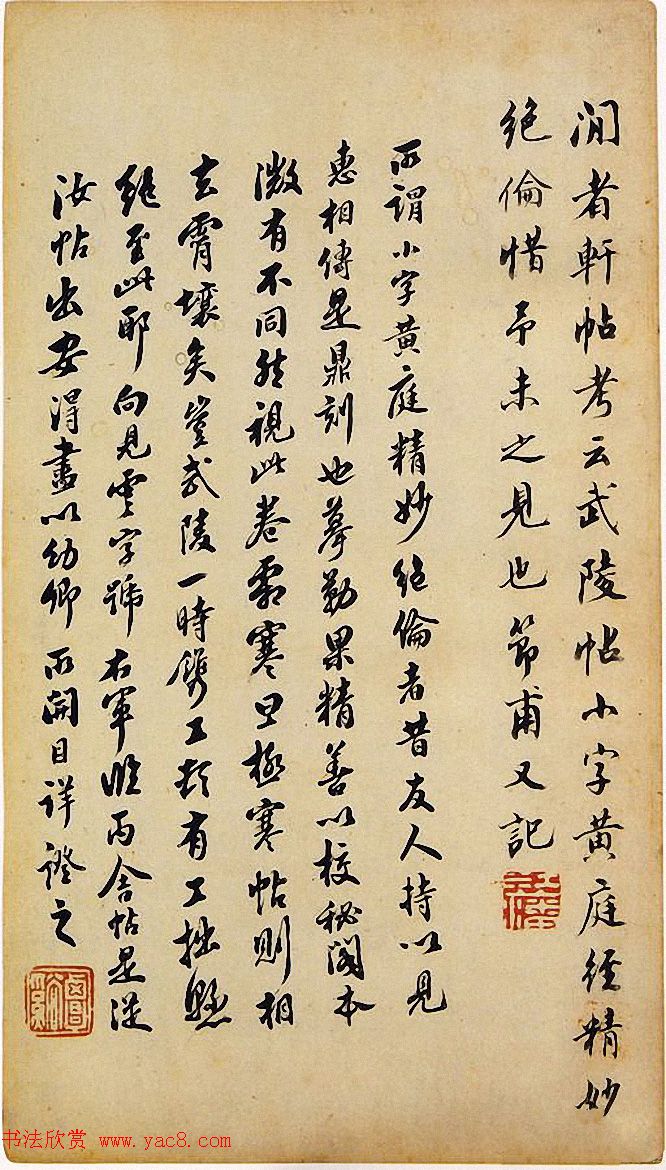 閒者軒帖考云武陵帖小字黄庭經精妙
絶倫惜予未之見也節甫又記
所謂小字黄庭精妙絶倫者昔友人持以見
惠相傳是鼎刻也摹勒果精善以校秘閣本
微有不同然視此卷霜寒旦極寒帖則相
去霄壤矣豈武陵一時鐫工類有工拙懸
絶至此耶向見雲字號右軍臨丙舍帖是從
汝帖出安得盡以幼卿所開目詳證之
书法欣赏 www.yac8.com